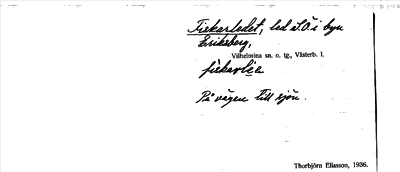 Fiskarledet, led i S.Ö. i byn
Eriksberg,
Vilhelmina sn. o. tg., Västerb. l.
På vägen till sjön.
Thorbjörn Eliasson, 1936.